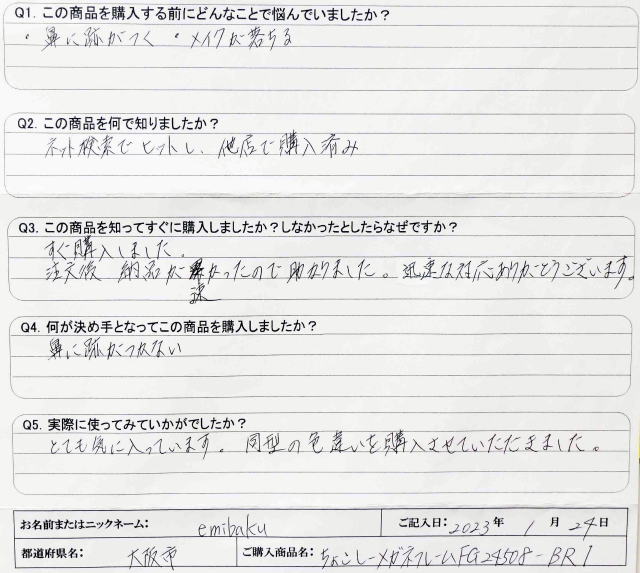 Q1. この商品を購入する前にどんなことで悩んでいましたか？
・鼻に跡がつく ・メイクが落ちる
Q2. この商品を何で知りましたか？
ネット検索でヒットし、他店で購入済み
Q3. この商品を知ってすぐに購入しましたか？しなかったとしたらなぜですか？
すぐ購入しました。
注文後 納品が速かったので助かりました。迅速な対応ありがとうございます。
Q4. 何が決め手となってこの商品を購入しましたか？
鼻に跡がつかない
Q5. 実際に使ってみていかがでしたか？
とても気に入っています。同型の色違いを購入させていただきました。
お名前またはニックネーム： emibaku ご記入日：2023年 1月 24日
都道府県名： 大阪市 ご購入商品名：ちょこしーメガネフレームFG24508-BR1